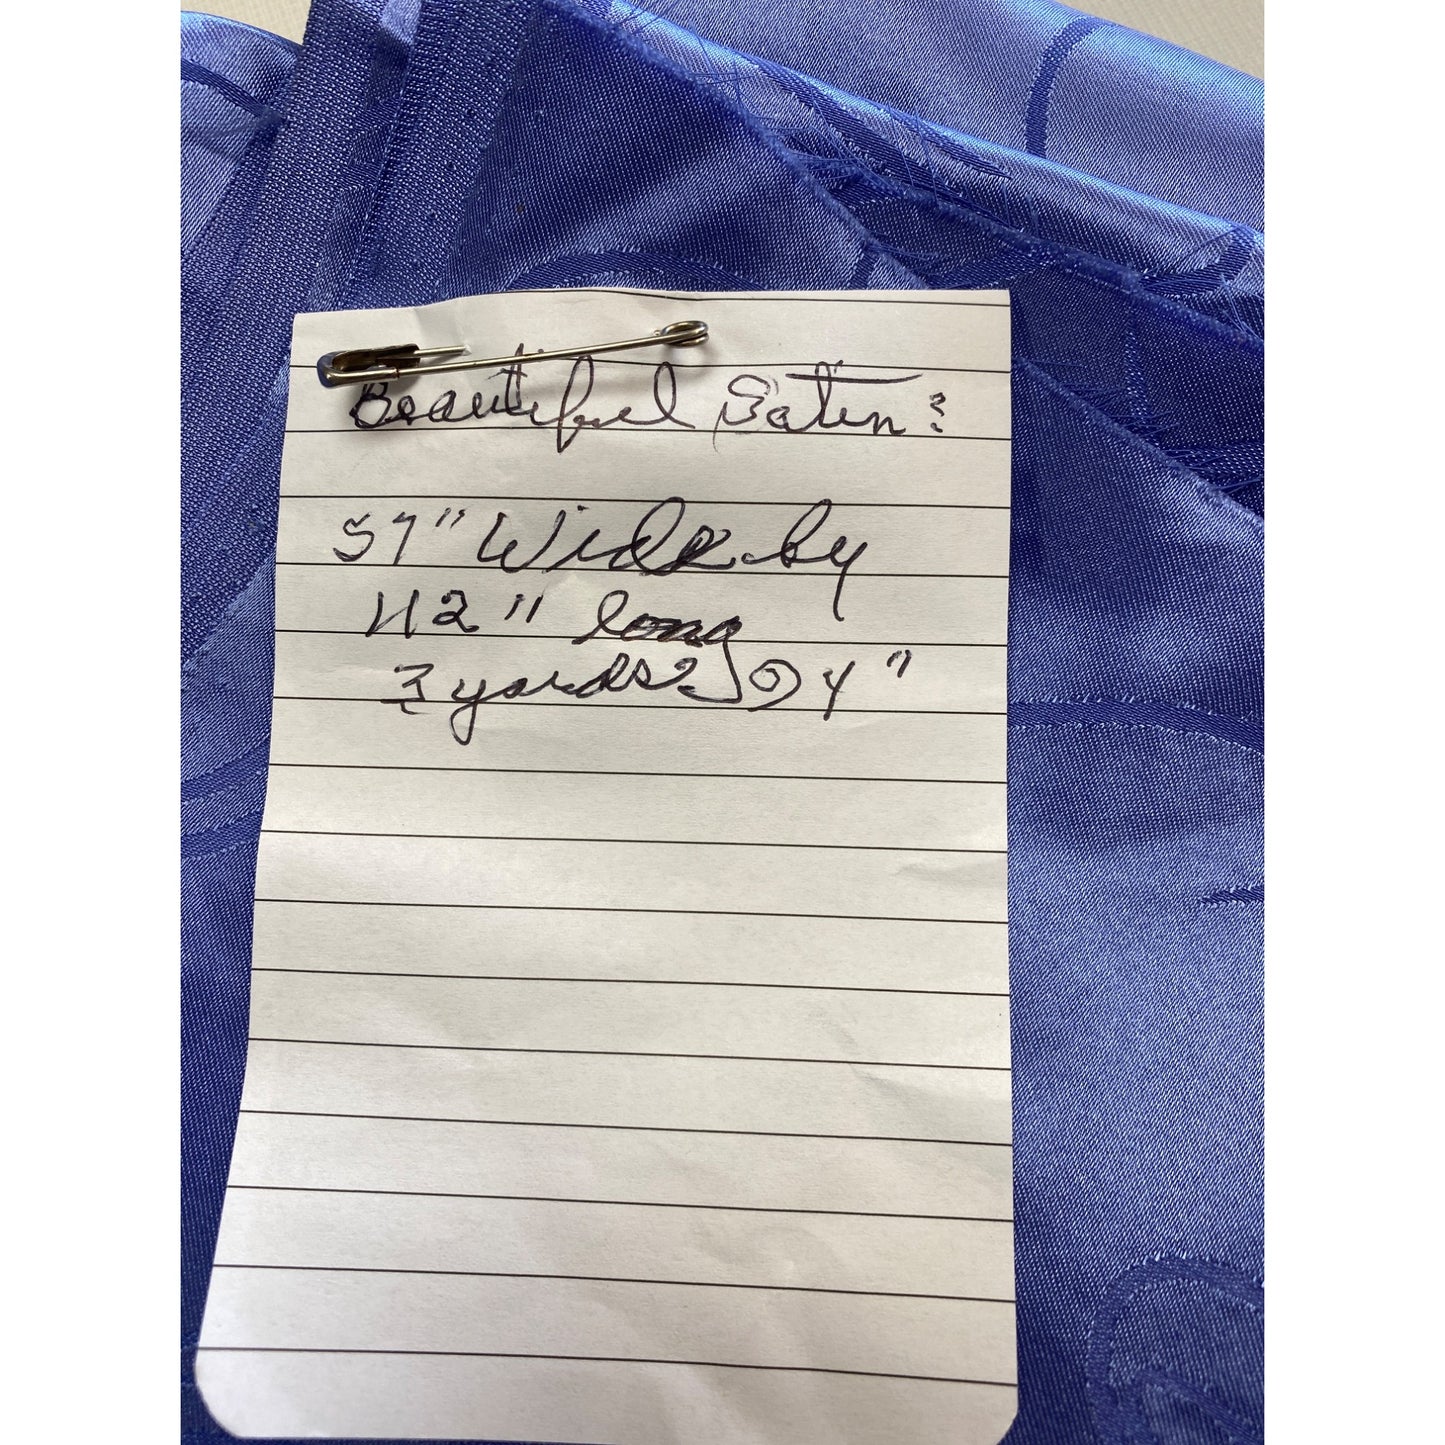 Beautiful Satin:
57" Wide by
112" long
3 yards 4"